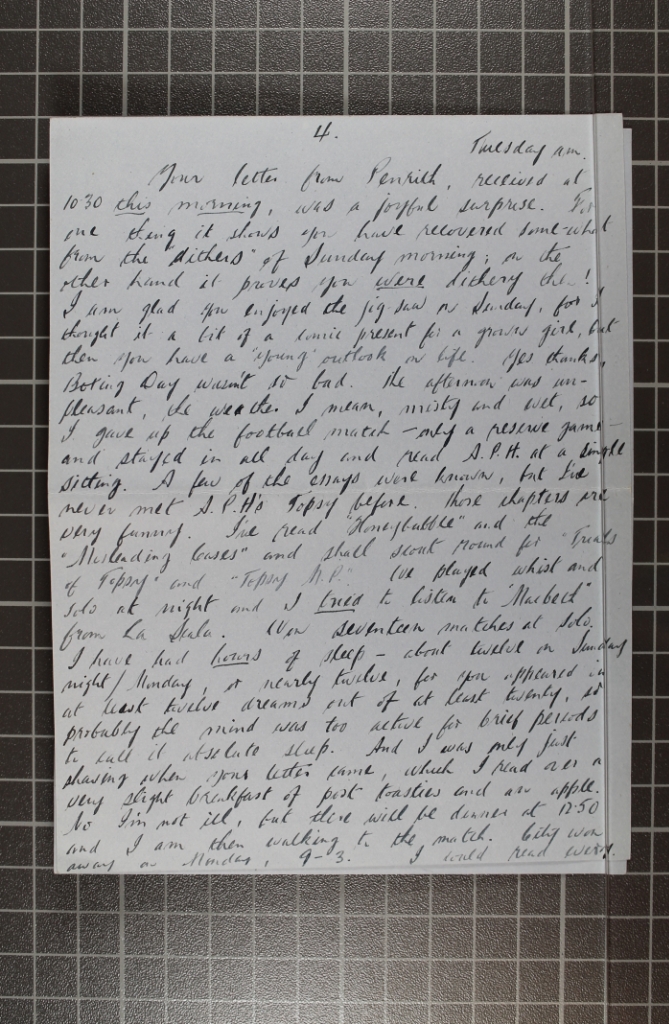 4.
Tuesday am.
Your letter from Penrith, received at
10.30 this morning, was a joyful surprise. For
one thing it shows you have recovered some-what
from the "dithers" of Sunday morning; on the
other hand it proves you were dithery then!
I am glad you enjoyed the jig-saw on Sunday, for I
thought it a bit of a comic present for a grown girl, but
then you have a "young" outlook on life. Yes thanks,
Boxing Day wasn't so bad. The afternoon was un-
pleasant, the weather I mean, misty and wet, so
I gave up the football match - only a reserve game -
and stayed in all day and read A.P.H. at a single
sitting. A few of the essays were known, but I've
never met A.P.H's Topsy before. Those chapters are
very funny. I've read "Honeybubble" and the
"Misleading Cases" and shall scout round for "Trials
of Topsy" and "Topsy M.P." I've played whist and
solo at night and I tried to listen to "Macbeth"
from La Scala. Won seventeen matches at solo.
I have had hours of sleep - about twelve on Sunday
night/Monday, or nearly twelve, for you appeared in
at least twelve dreams out of at least twenty, so
probably the mind was too active for brief periods
to call it absolute sleep. And I was only just
shaving when your letter came, which I read over a
very slight breakfast of post toasties and an apple.
No I'm not ill, but there will be dinner at 12.50
and I am then walking to the match. City won
away on Monday, 9-3. I could read